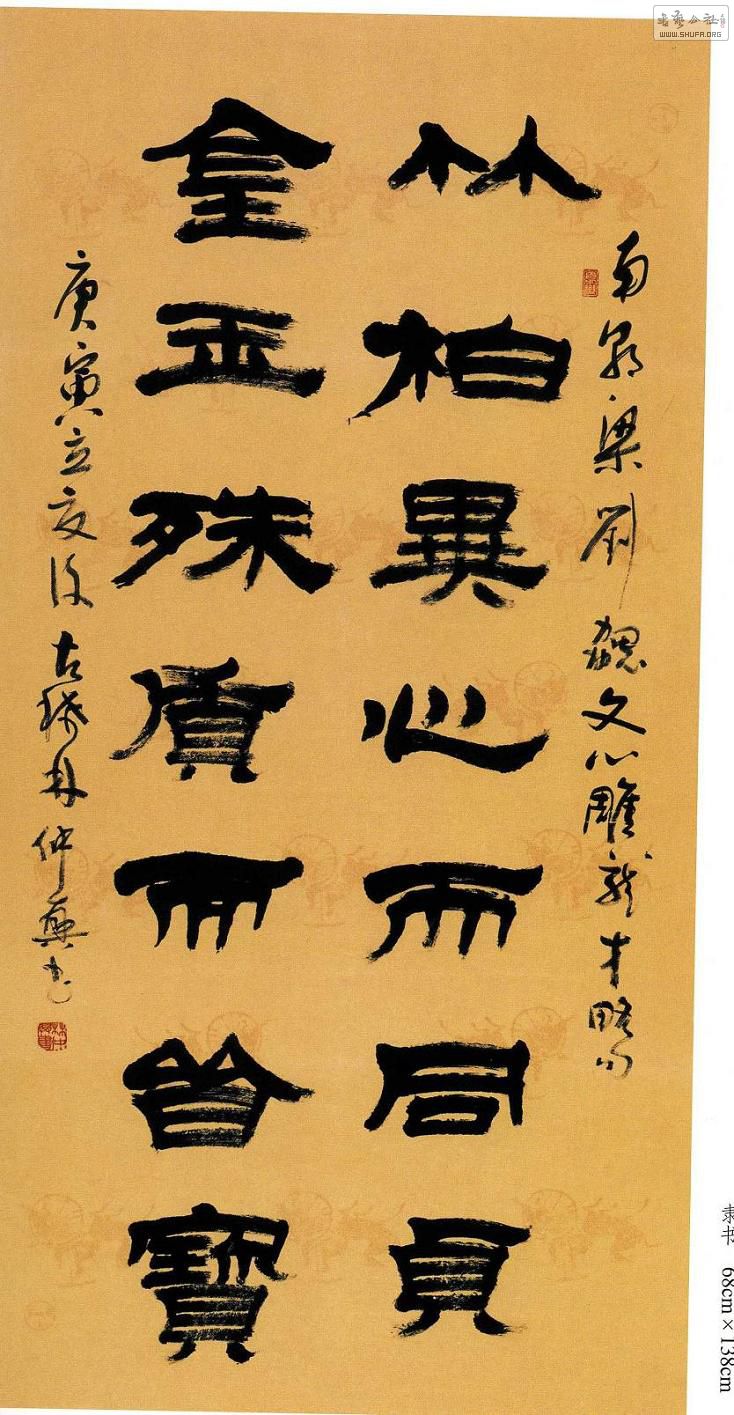 書藝公社
WWW.SHUFA.ORG
南朝梁劉勰文心雕龍才略句
竹柏異心而同貞
金玉殊質而皆寶
庚寅立夏後古林仲興書
隶书 68cm×138cm